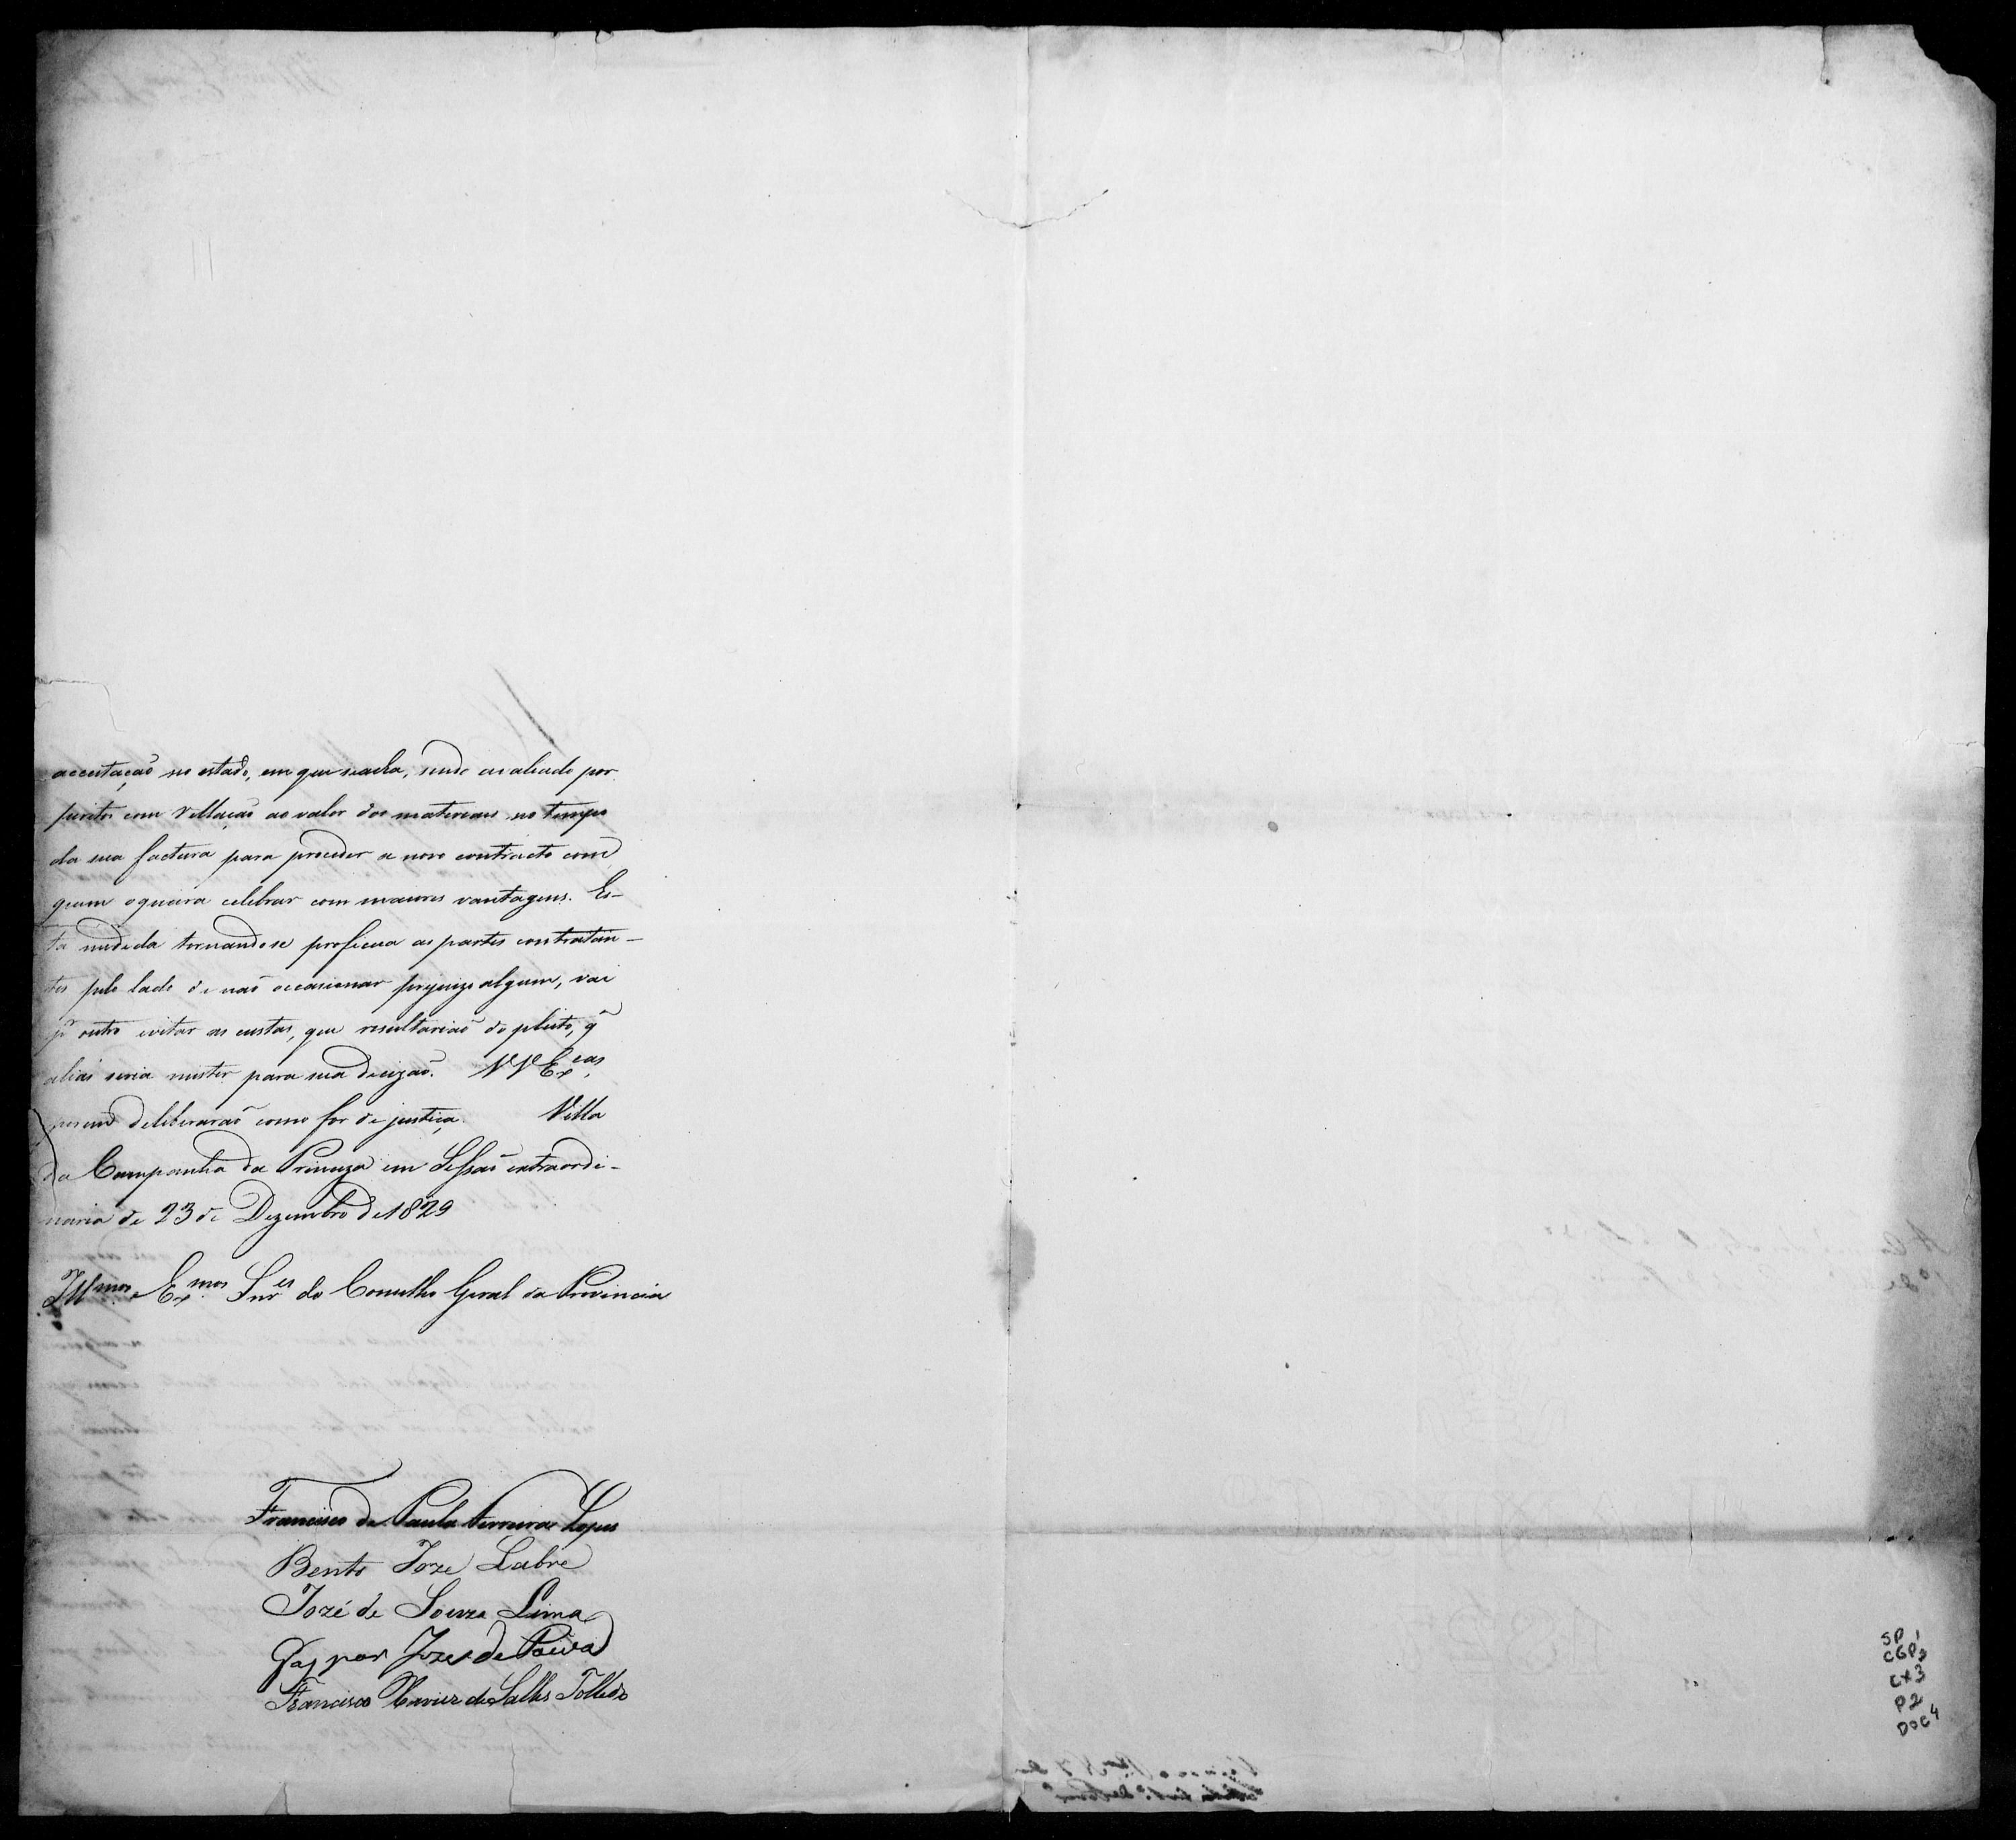 acceitação no estado, em que seacha, sendo avaliado por
peritos com rellação ao valor dos materiaes no tempo
da sua factura para proceder a novo contracto com
quem oqueira celebrar com maiores vantagens. Es-
ta medida tornandose proficua as partes contratan-
tes pelo lado de não occasionar prejuizo algum, vai
pr outro evitar as custas, que resultarião do pleito, q̃
alias seria mister para sua decizão. VVExcas,
porem deliberarão como for de justiça. Villa
da Campanha da Princeza em Sessão extraordi-
naria de 23 de Dezembro de 1829
Illmos. e Exmos. Snres do Conselho Geral da Provincia
Francisco de Paula Ferreira Lopes
Bento Joze Labre
Jozé de Souza Lima
Gaspar Joze de Paiva
Francisco Xavier de Salles Tolledo
SP 1
CGP3
CX3
P2
DOC 4